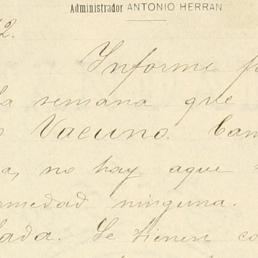 Administrador ANTONIO HERRAN
2.
Informe
la semana que
Vacuno.
a, no hay aque
ermedad ninguna.
lada. Se tienen co